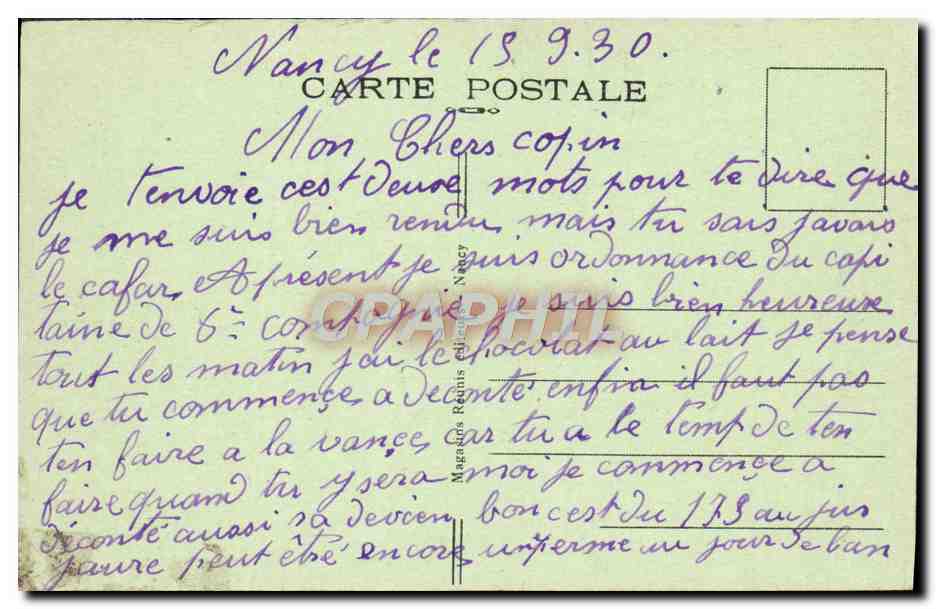 Nancy le 15 9.30.
CARTE POSTALE
Mon Chers copin
je t'envoie cest deuxe mots pour te dire que
je me suis bien rendu mais tu sais javais
le cafar, A présent je suis ordonnance du capi
taine de 6e compagnie je suis bien heureuxe
tout les matin j'ai le chocolat au lait je pense
que tu commençe a deconté enfin il faut pas
ten faire a la vançe, car tu a le temp de ten
faire quand tu y sera moi je commençe a
déconté aussi sa devien bon cest du 173 au jus
jaure peut étré encore unperme un jour de ban
Magasins Réunis éditeurs Nancy
CPAPHIL